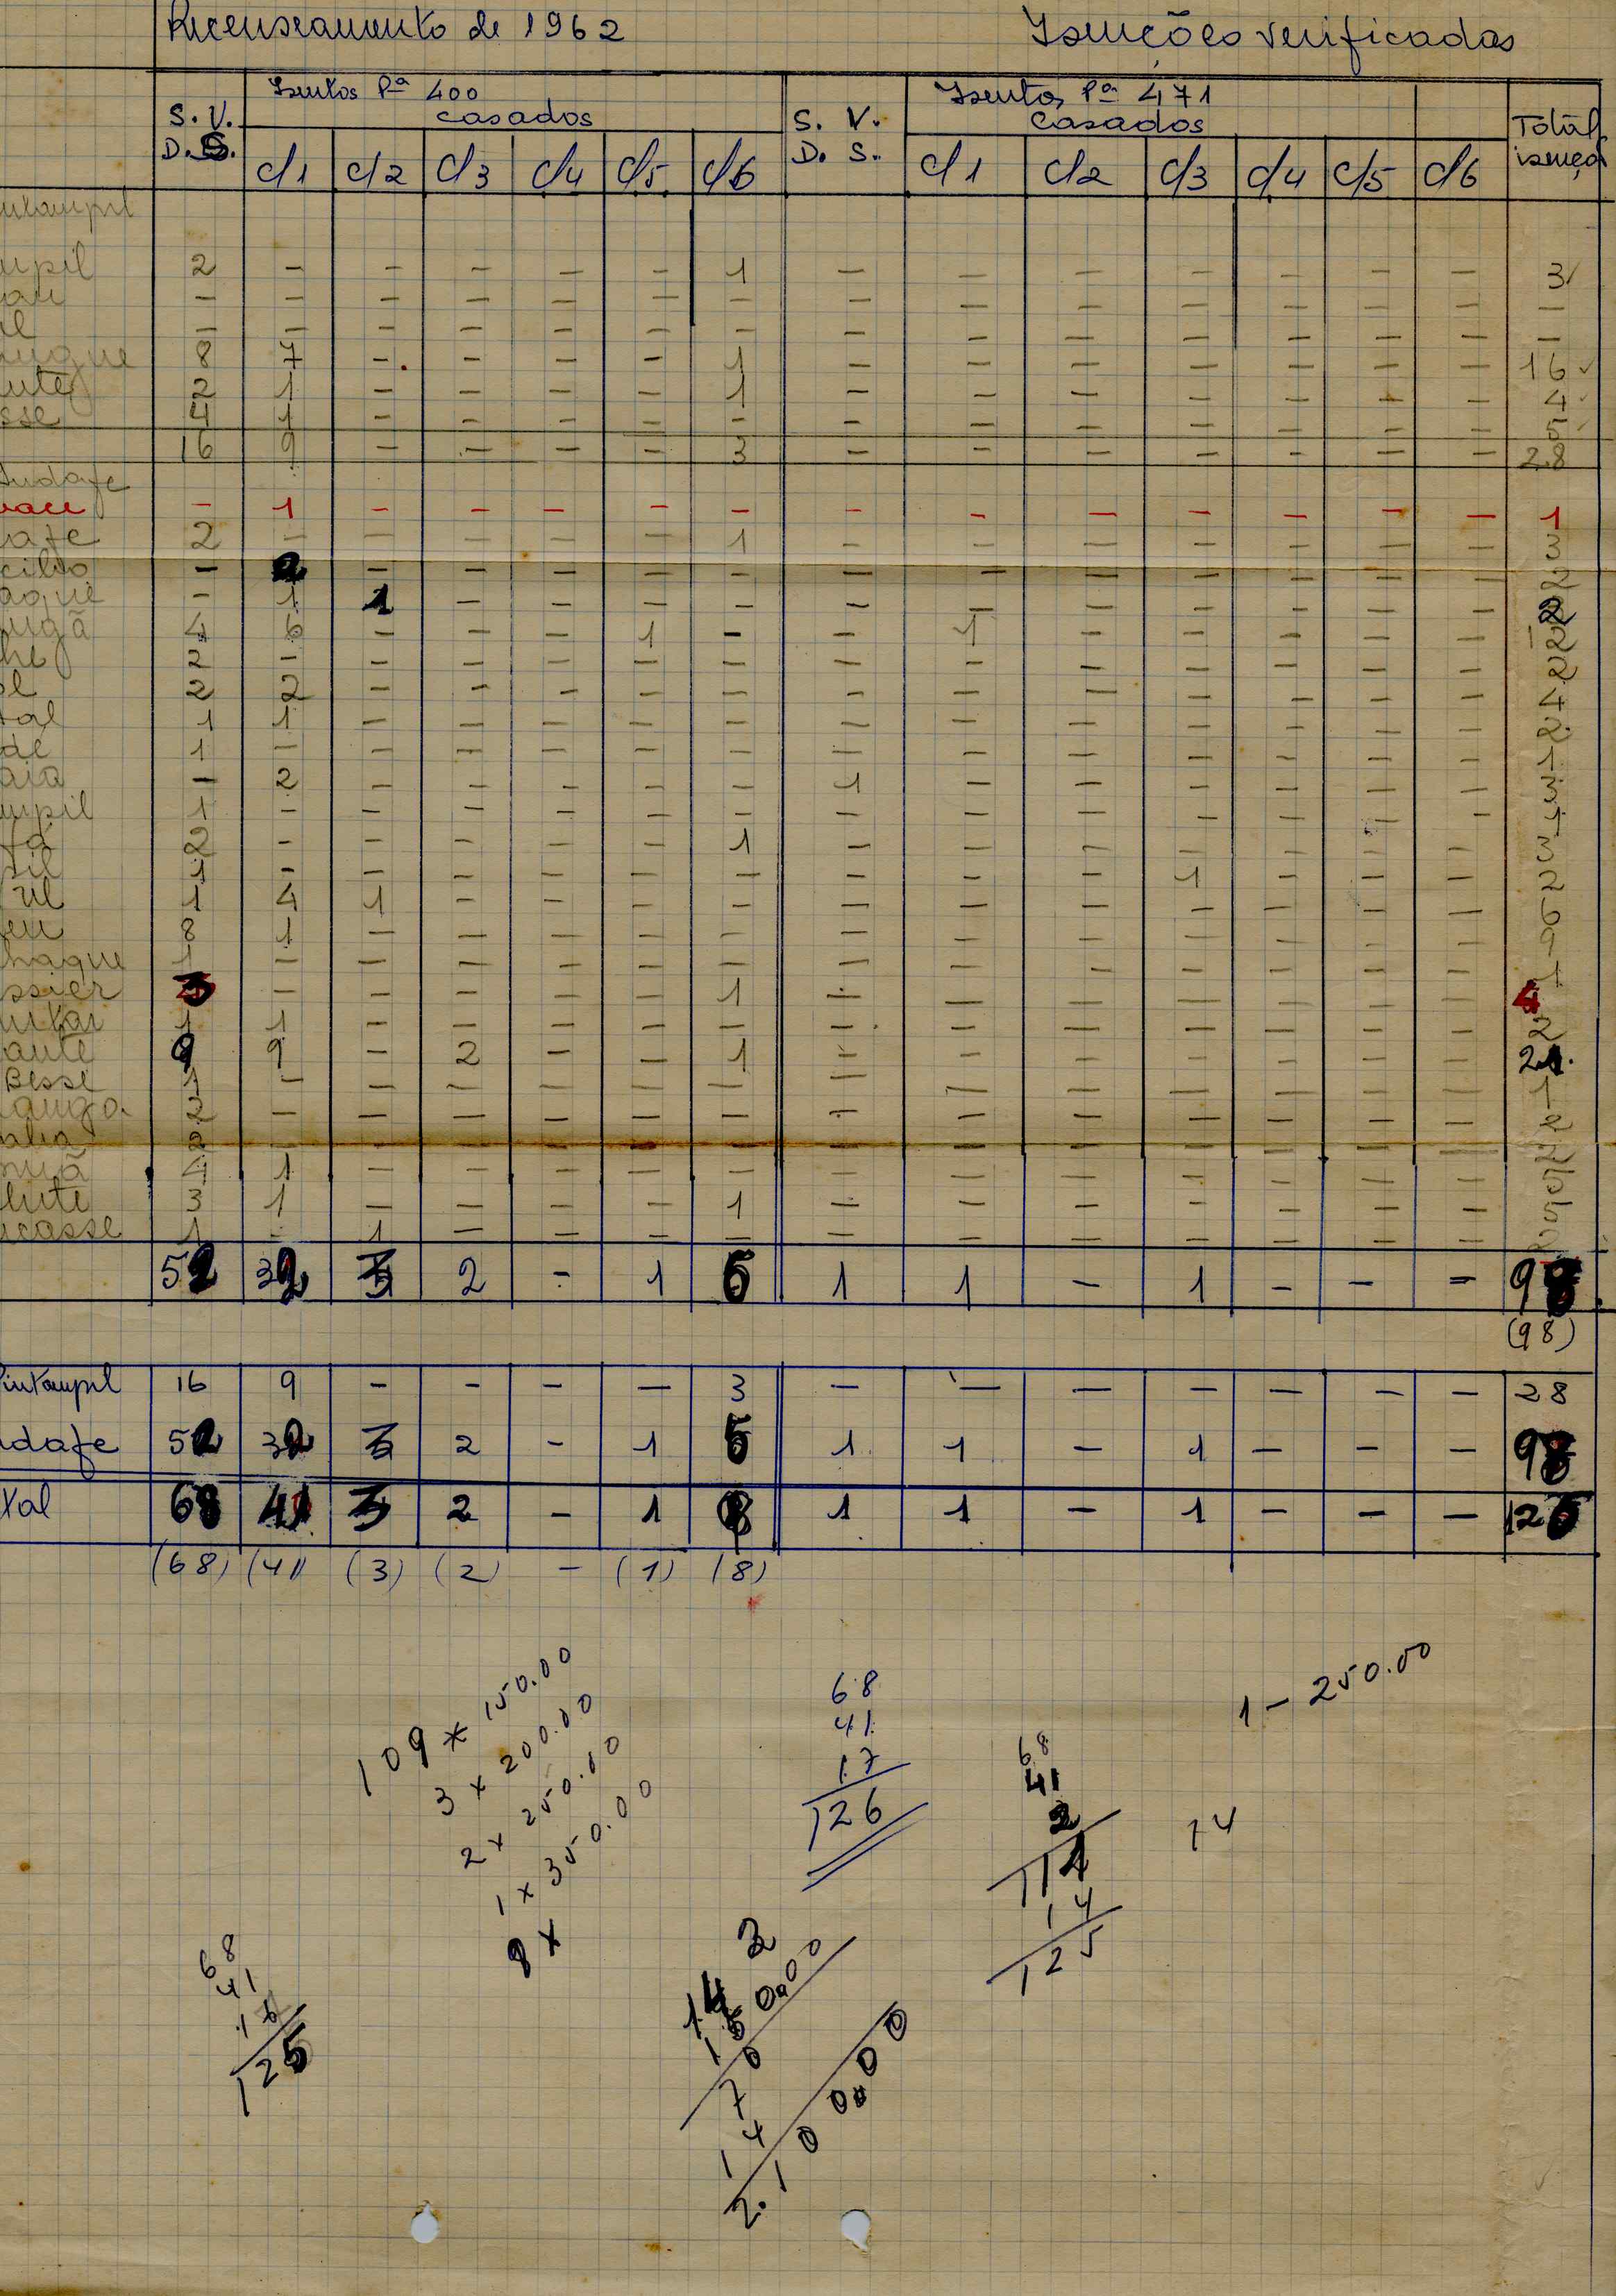 Recenseamento de 1962 Isenções verificadas
Isentos Pª 400 Isentos Pª 471
S. V. casados S. V. casados Total
D. S. c/1 c/2 c/3 c/4 c/5 c/6 D. S. c/1 c/2 c/3 c/4 c/5 c/6 isenço
upil 2 - - - - - 1 - - - - - - - 3
- - - - - - - - - - - - - - -
- - - - - - - - - - - - - - -
8 7 - - - - 1 - - - - - - - 16
ute 2 1 - - - - 1 - - - - - - - 4
sse 4 1 - - - - - - - - - - - - 5
16 9 - - - - 3 - - - - - - - 28
Indafe
- 1 - - - - - - - - - - - - 1
afe 2 - - - - - 1 - - - - - - - 3
- 2 - - - - - - - - - - - - 2
- 1 1 - - - - - - - - - - - 2
ugã 4 6 - - - 1 - - 1 - - - - - 12
2 - - - - - - - - - - - - - 2
2 2 - - - - - - - - - - - - 4
tal 1 1 - - - - - - - - - - - - 2
de 1 - - - - - - - - - - - - - 1
aia - 2 - - - - - 1 - - - - - - 3
upil 1 - - - - - - - - - - - - - 1
2 - - - - - 1 - - - - - - - 3
sil 1 - - - - - - - - - 1 - - - 2
1 4 1 - - - - - - - - - - - 6
8 1 - - - - - - - - - - - - 9
haque 1 - - - - - - - - - - - - - 1
ssier 3 - - - - - 1 - - - - - - - 4
1 1 - - - - - - - - - - - - 2
ante 9 9 - 2 - - 1 - - - - - - - 21
Besse 1 - - - - - - - - - - - - - 1
anga 2 - - - - - - - - - - - - - 2
2 - - - - - - - - - - - - - 2
4 1 - - - - - - - - - - - - 5
lute 3 1 - - - - 1 - - - - - - - 5
casse 1 - 1 - - - - - - - - - - - 2
52 32 3 2 - 1 5 1 1 - 1 - - - 98
(98)
intaupil 16 9 - - - - 3 - - - - - - - 28
dafe 52 32 3 2 - 1 5 1 1 - 1 - - - 98
tal 68 41 3 2 - 1 8 1 1 - 1 - - - 126
(68) (41) (3) (2) - (1) (8)
109 x 150.00
3 x 200.00
2 x 250.00
1 x 350.00
8 x
68
41
17
126
68
41
2
111
14
125
1 - 250.00
14
68
41
16
125
14
150.00
70
14
2.100.00